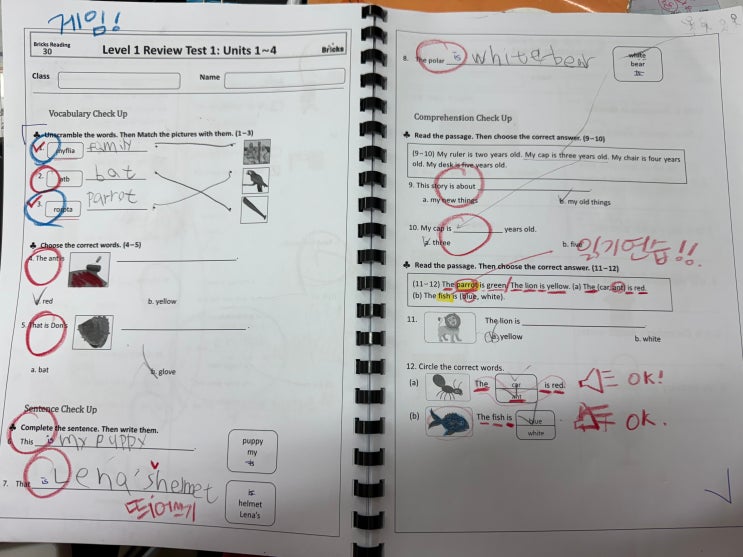 게임!
Bricks Reading
30
Level 1 Review Test 1: Units 1~4
Bricks
Class
Name
Vocabulary Check Up
♣ Unscramble the words. Then Match the pictures with them. (1~3)
1. myflia family
2. atb bat
3. roapta parrot
♣ Choose the correct words. (4~5)
4. The ant is
a. red b. yellow
5. That is Don's
a. bat b. glove
Sentence Check Up
♣ Complete the sentence. Then write them.
6. This is my puppy
puppy
my
is
7. That is Lena's helmet
띄어쓰기
is
helmet
Lena's
8. The polar is white bear
white
bear
is
Comprehension Check Up
♣ Read the passage. Then choose the correct answer. (9~10)
(9~10) My ruler is two years old. My cap is three years old. My chair is four years
old. My desk is five years old.
9. This story is about
a. my new things b. my old things
10. My cap is years old.
a. three b. five
읽기연습!!
♣ Read the passage. Then choose the correct answer. (11~12)
(11~12) The parrot is green. The lion is yellow. (a) The (car, ant) is red.
(b) The fish is (blue, white).
11. The lion is
a. yellow b. white
12. Circle the correct words.
(a) The car is red. OK!
ant
(b) The fish is blue OK.
white